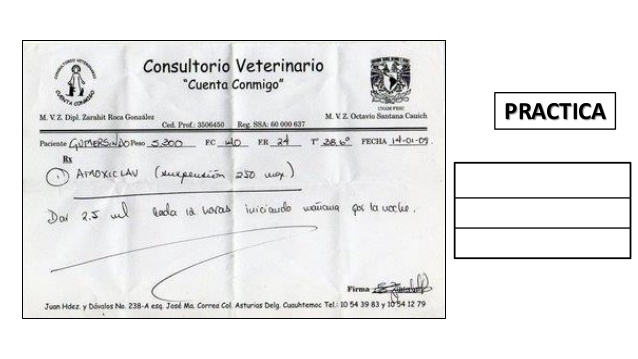 Consultorio Veterinario
"Cuenta Conmigo"
CONSULTORIO VETERINARIO
CUENTA CONMIGO
UNAM FESC
M. V. Z. Dipl. Zarahit Roca González
Ced. Prof.: 3506450 Reg. SSA: 60 000 637
M. V. Z. Octavio Santana Cauich
Paciente GUMERSINDO Peso 5.200 FC 120 FR 24 T° 38.6° FECHA 14-01-09.
Rx
1 AMOXICLAV (suspensión 250 )
Dar 2.5 ml cada 12 horas iniciando mañana por la noche.
Firma
Juan Hdez. y Dávalos No. 238-A esq. José Ma. Correa Col. Asturias Delg. Cuauhtemoc Tel.: 10 54 39 83 y 10 54 12 79
PRACTICA